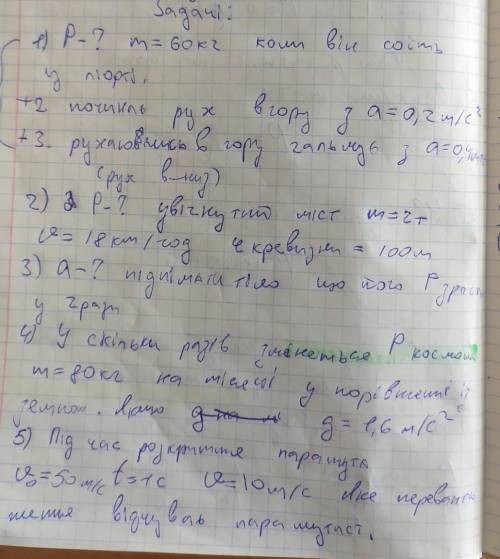 Задачі:
1) P-? m=60кг коли він соїть
у ліфті.
+2 почина рух вгору з a=0,2м/с²
+3. рухаючись вгору гальмує з a=0,4м/с
(рух вниз)
2) P-? увігнутий міст m=2т
υ=18км/год кревизни = 100м
3) a-? піднімати тіло що його P зрос
у 2 рази
4) У скільки разів зменеться P косма
m=80кг на місяці у порівнянні із
земною. Якщо g = 1,6м/с²
5) Під час розкриття парашута
υ₀=50м/с t=1с υ=10м/с яке перевант
ження відчував парашутист.